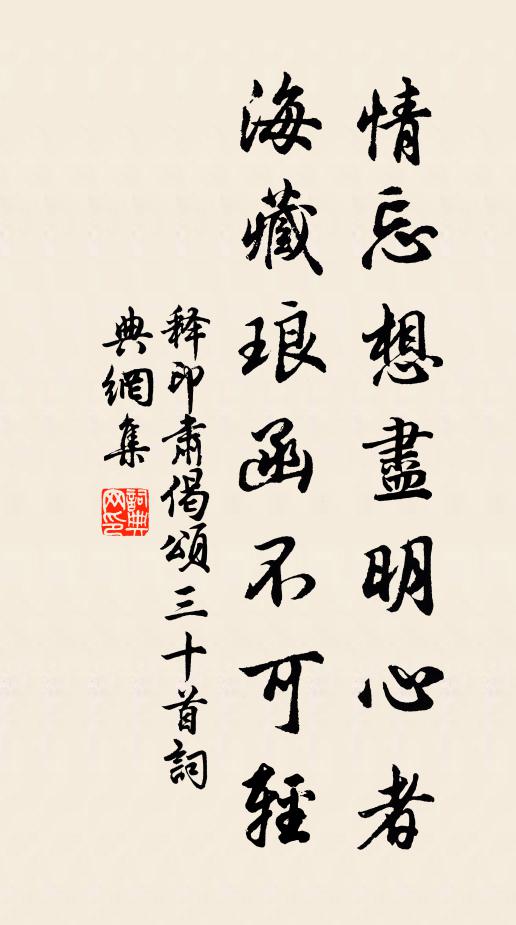 情忘想盡明心者
海藏琅函不可輕
释印肅偈頌三十首詞
典網集
詞典网印